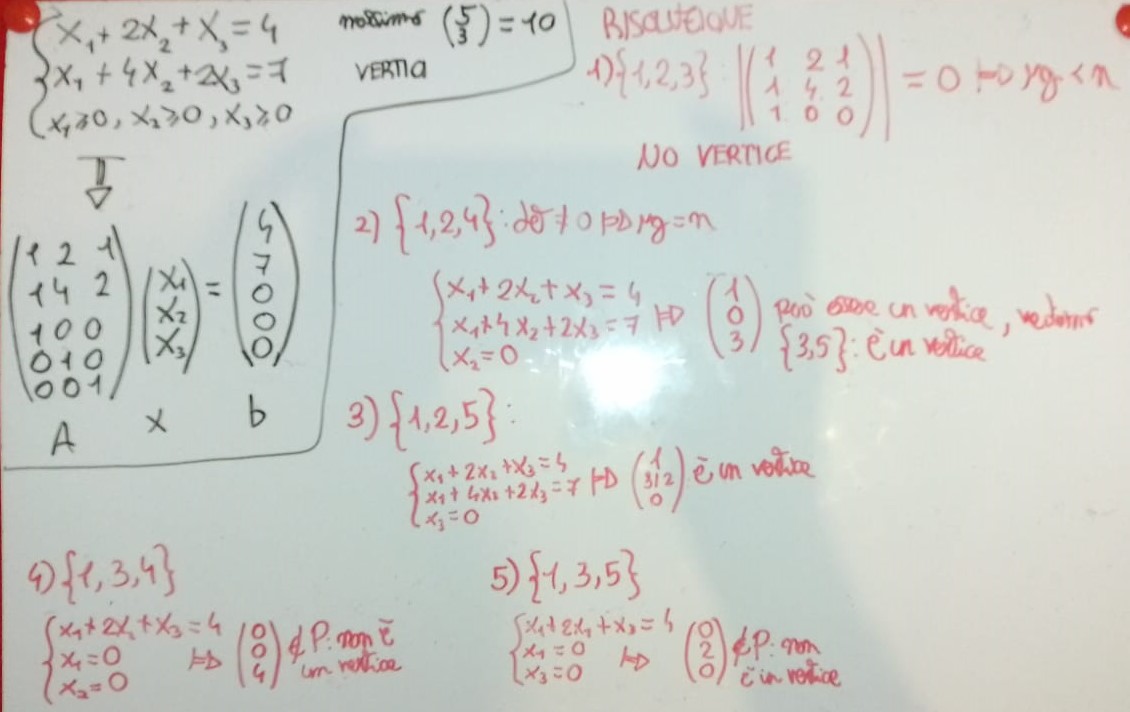 x₁ + 2x₂ + x₃ = 4
x₁ + 4x₂ + 2x₃ = 7
x₁ ≥ 0, x₂ ≥ 0, x₃ ≥ 0
massimo (5 3) = 10
VERTICI
1 2 1
1 4 2
1 0 0
0 1 0
0 0 1
x₁
x₂
x₃
=
4
7
0
0
0
A x b
1) {1,2,3} : |(1 2 1
1 4 2
1 0 0)| = 0 ⇒ rg < n
NO VERTICE
2) {1,2,4} : det ≠ 0 ⇒ rg = n
x₁ + 2x₂ + x₃ = 4
x₁ + 4x₂ + 2x₃ = 7 ⇒ (1 0 3) può essere un vertice, vediamo
x₂ = 0
{3,5} : è un vertice
3) {1,2,5} :
x₁ + 2x₂ + x₃ = 4
x₁ + 4x₂ + 2x₃ = 7 ⇒ (1 3/2 0) è un vertice
x₃ = 0
4) {1,3,4}
x₁ + 2x₂ + x₃ = 4
x₁ = 0 ⇒ (0 0 4) ∉ P : non è
x₂ = 0
un vertice
5) {1,3,5}
x₁ + 2x₂ + x₃ = 4
x₁ = 0 ⇒ (0 2 0) ∉ P : non
x₃ = 0
è un vertice